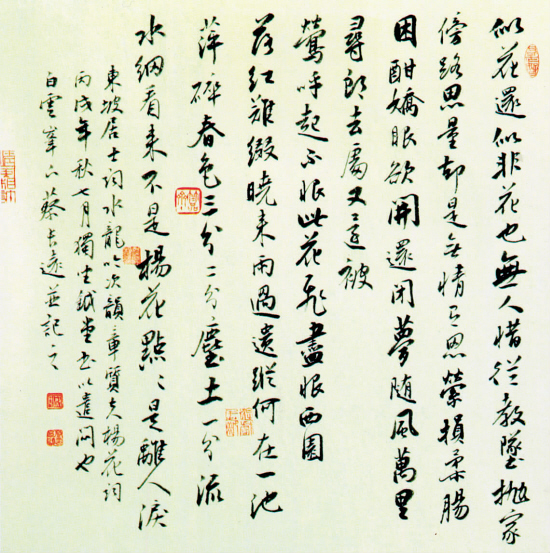 似花還似非花也無人惜從教墜拋家
傍路思量却是無情有思縈損柔腸
困酣嬌眼欲開還閉夢隨風萬里
尋郎去處又還被
鶯呼起不恨此花飛盡恨西園
落紅難綴曉來雨過遺蹤何在一池
萍碎春色三分二分塵土一分流
水細看來不是楊花點〻是離人淚
東坡居士詞水龍吟次韻章質夫楊花詞
丙戌年秋七月獨坐堂書以遣悶也
白雲峯下蔡長遠並記之